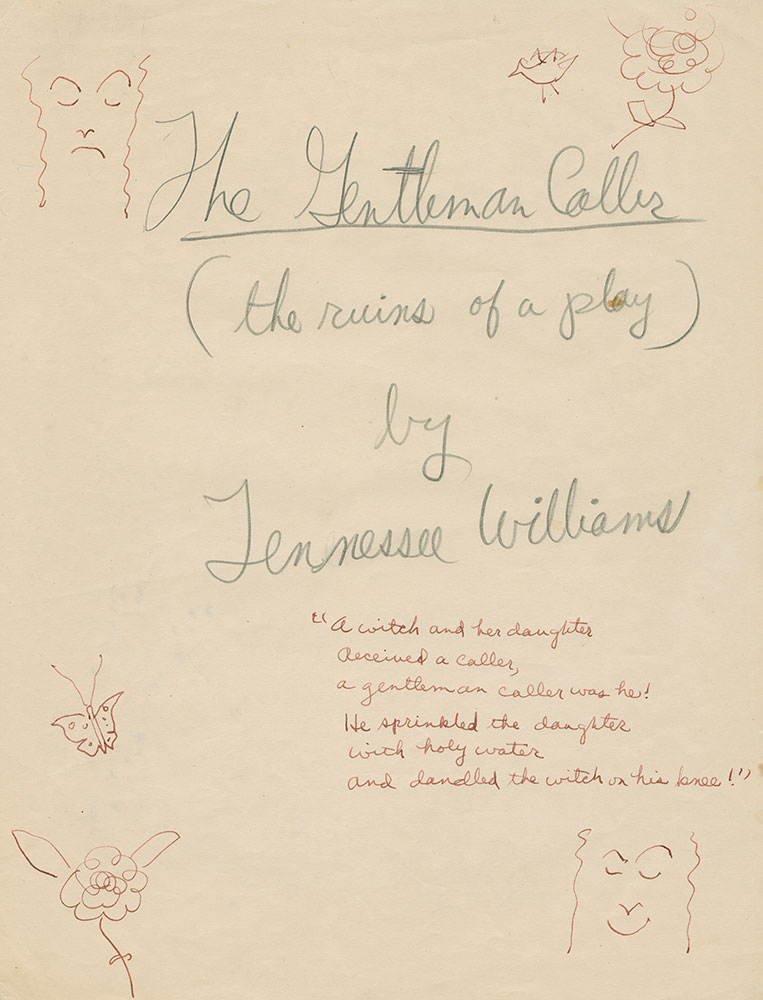 The Gentleman Caller
(the ruins of a play)
by
Tennessee Williams
"A witch and her daughter
Received a caller,
a gentleman caller was he!
He sprinkled the daughter
with holy water
and dandled the witch on his knee!"